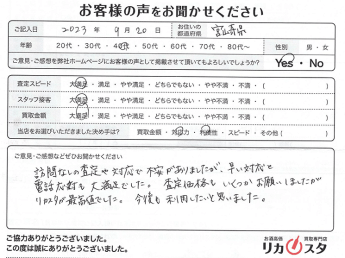 お客様の声をお聞かせください
ご記入日 2023年 9月 20日 お住いの都道府県 宮崎県
年齢 20代・30代・40代・50代・60代・70代・80代〜 性別 男・女
ご意見・ご感想を弊社ホームページにお客様の声として掲載させて頂いてもよろしいでしょうか? Yes・No
査定スピード 大満足・満足・やや満足・どちらでもない・やや不満・不満・( )
スタッフ接客 大満足・満足・やや満足・どちらでもない・やや不満・不満・( )
買取金額 大満足・満足・やや満足・どちらでもない・やや不満・不満・( )
当店をお選びいただきました決め手は? 買取金額・対応力・利便性・スピード・その他( )
ご意見・ご感想などぜひお聞かせください
訪問なしの査定や対応で不安がありましたが、早い対応と
電話応対も大満足でした。査定価格もいくつかお願いしましたが
リカスタが最高値でした。今後も利用したいと思いました。
ご協力ありがとうございました。
この度は誠にありがとうございました。
お酒高価 買取専門店
リカスタ